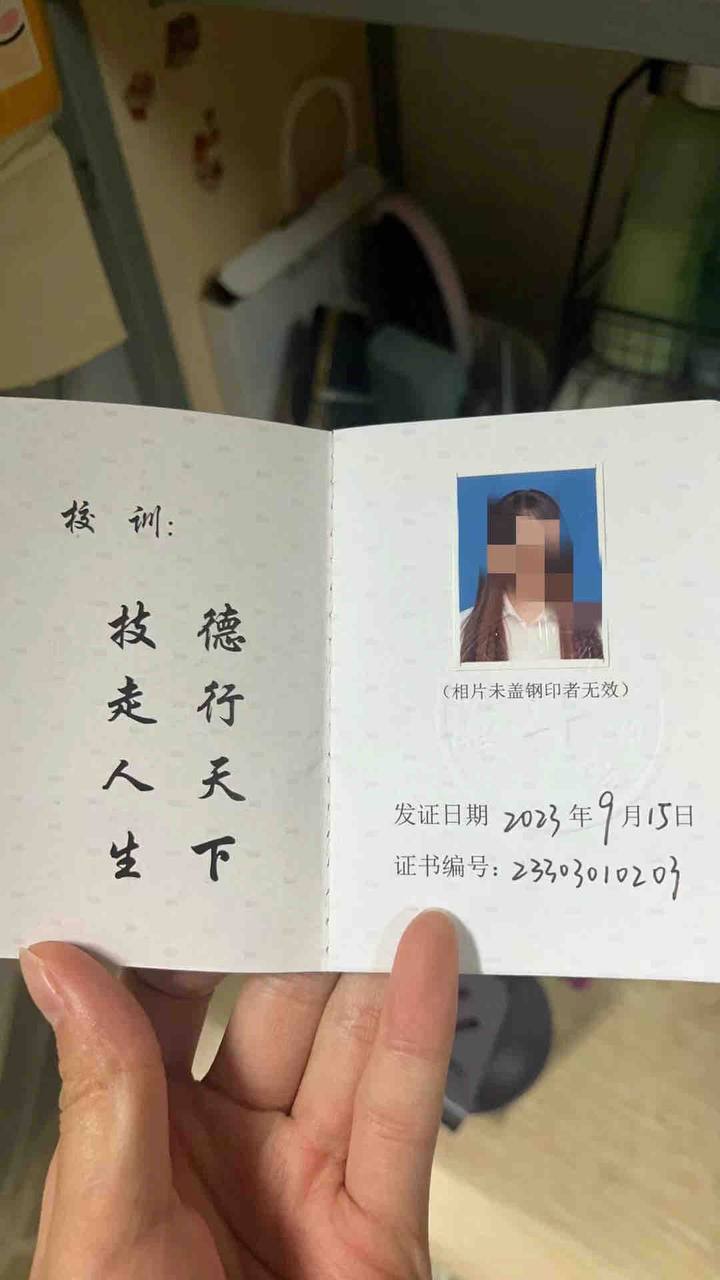 校 训：
德行天下
技走人生
（相片未盖钢印者无效）
发证日期 2023年9月15日
证书编号：23303010203